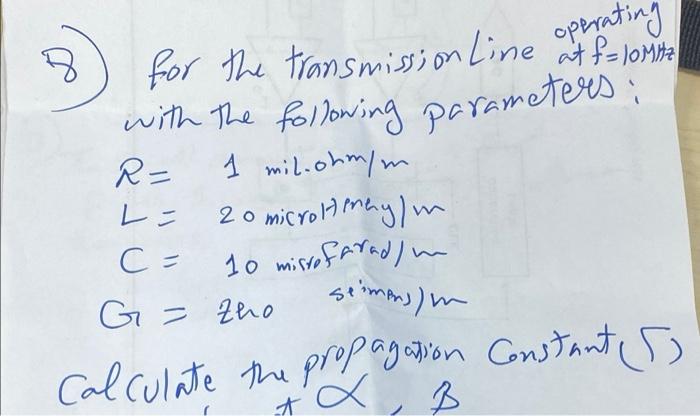 8) for the transmission Line operating at f=10MHz
with the following parameters:
R= 1 mil.ohm/m
L= 20 microHenery/m
C= 10 microfarad/m
G= Zero seimens/m
Calculate the propagation Constant (Γ)
α, β